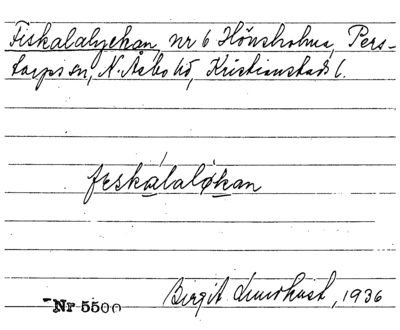 Fiskalalyckan, nr 6 Hönsholma, Pers-
torps sn, N. Åsbo hd, Kristianstads l.
feskálaløkan
Nr 5500
Birgit Lundkvist, 1936